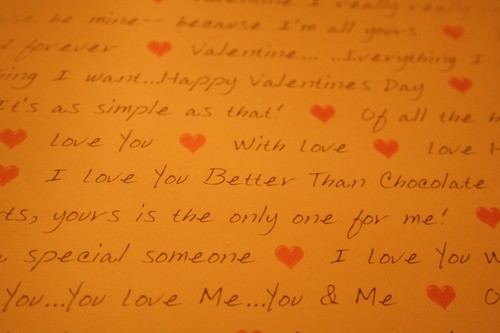 Valentine I really really
be mine-- because I'm all yours
forever Valentine... ..Everything I
I want...Happy Valentines Day
It's as simple as that! Of all the
Love You With Love Love
I Love You Better Than Chocolate
yours is the only one for me!
special someone I Love You
You...You Love Me...You & Me